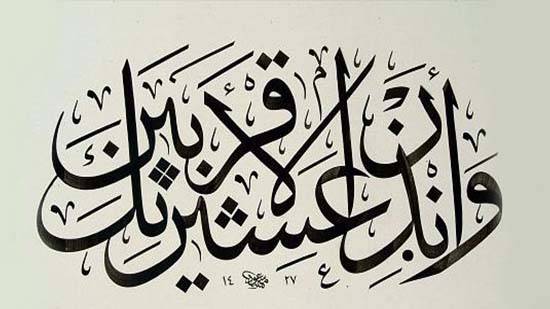 وأنذر عشيرتك الاقربين
١٤ ٢٧